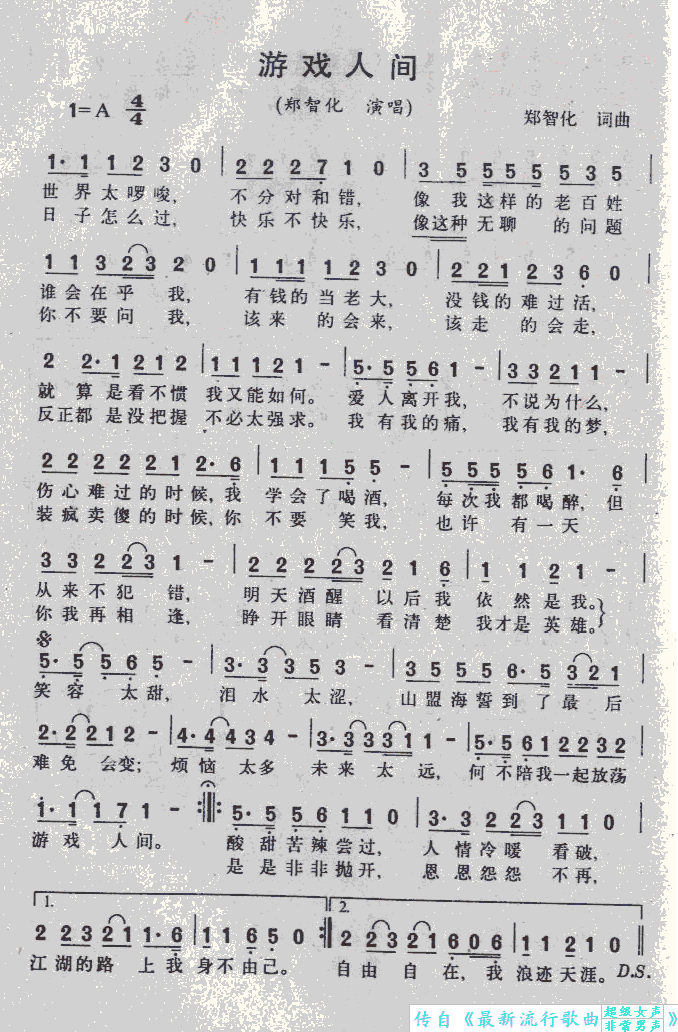 游戏人间
1=A 4/4
(郑智化 演唱)
郑智化 词曲
1· 1 1 2 3 0 | 2 2 2 7 1 0 | 3 5 5 5 5 5 3 5 |
世界太啰唆， 不分对和错， 像我这样的老百姓
日子怎么过， 快乐不快乐， 像这种无聊 的问题
1 1 3 2 3 2 0 | 1 1 1 1 2 3 0 | 2 2 1 2 3 6 0 |
谁会在乎 我， 有钱的当老大， 没钱的难过活，
你不要问 我， 该来 的会来， 该走 的会走，
2 2· 1 2 1 2 | 1 1 1 2 1 - | 5· 5 5 6 1 - | 3 3 2 1 1 - |
就 算是看不惯 我又能如何。 爱人离开我， 不说为什么，
反正都 是没把握 不必太强求。 我有我的痛， 我有我的梦，
2 2 2 2 2 1 2· 6 | 1 1 1 5 5· - | 5 5 5 5 6 1· 6 |
伤心难过的时候，我 学会了喝酒， 每次我都喝醉，但
装疯卖傻的时候，你 不要 笑我， 也许 有一天
3 3 2 2 3 1 - | 2 2 2 2 3 2 1 6 | 1 1 2 1 - |
从来不犯 错， 明天酒醒 以后我 依然是我。
你我再相 逢， 睁开眼睛 看清楚 我才是英雄。
5· 5 5 6 5 - | 3· 3 3 3 5 3 - | 3 5 5 5 6· 5 3 2 1 |
笑容 太甜， 泪水 太涩， 山盟海誓到了最后
2· 2 2 2 1 2 - | 4· 4 4 4 3 4 - | 3· 3 3 3 1 1 - | 5· 5 6 1 2 2 3 2 |
难免 会变； 烦恼 太多 未来 太远， 何不陪我一起放荡
1· 1 1 7 1 - :‖: 5· 5 5 6 1 1 0 | 3· 3 2 2 3 1 1 0 |
游戏 人间。 酸甜苦辣尝过， 人情冷暖 看破，
是是非非抛开， 恩恩怨怨 不再，
1. 2.
2 2 3 2 1 1· 6 | 1 1 6 5 0 :‖ 2 2 3 2 1 6 0 6 | 1 1 2 1 0 ‖
江湖的路 上我 身不由己。 自由 自在，我 浪迹天涯。D.S.
传自《最新流行歌曲超级女声非常男声》